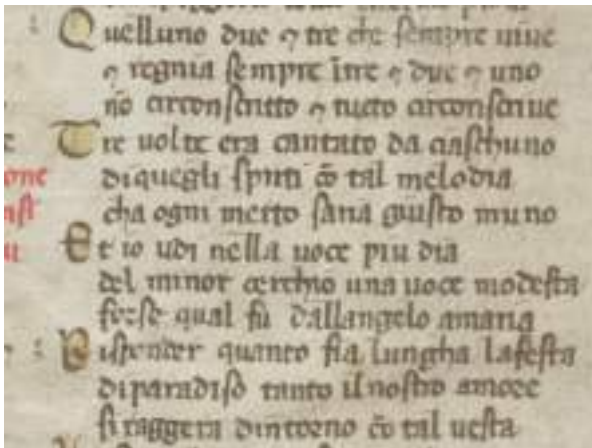 Quelluno due ⁊ tre che sempre uiue
⁊ regnia sempre ītre ⁊ due ⁊ uno
nō circonscritto ⁊ tucto circonscriue
Tre uolte era cantato da ciaschuno
diquegli spirti cō tal melodia
cha ogni merto saria giusto muno
Et io udi nella uoce piu dia
del minor cerchio una uoce modesta
forse qual fu dallangelo a maria
Risponder quanto fia lungha lafesta
diparadiso tanto ilnostro amore
si raggera dintorno cō tal uesta